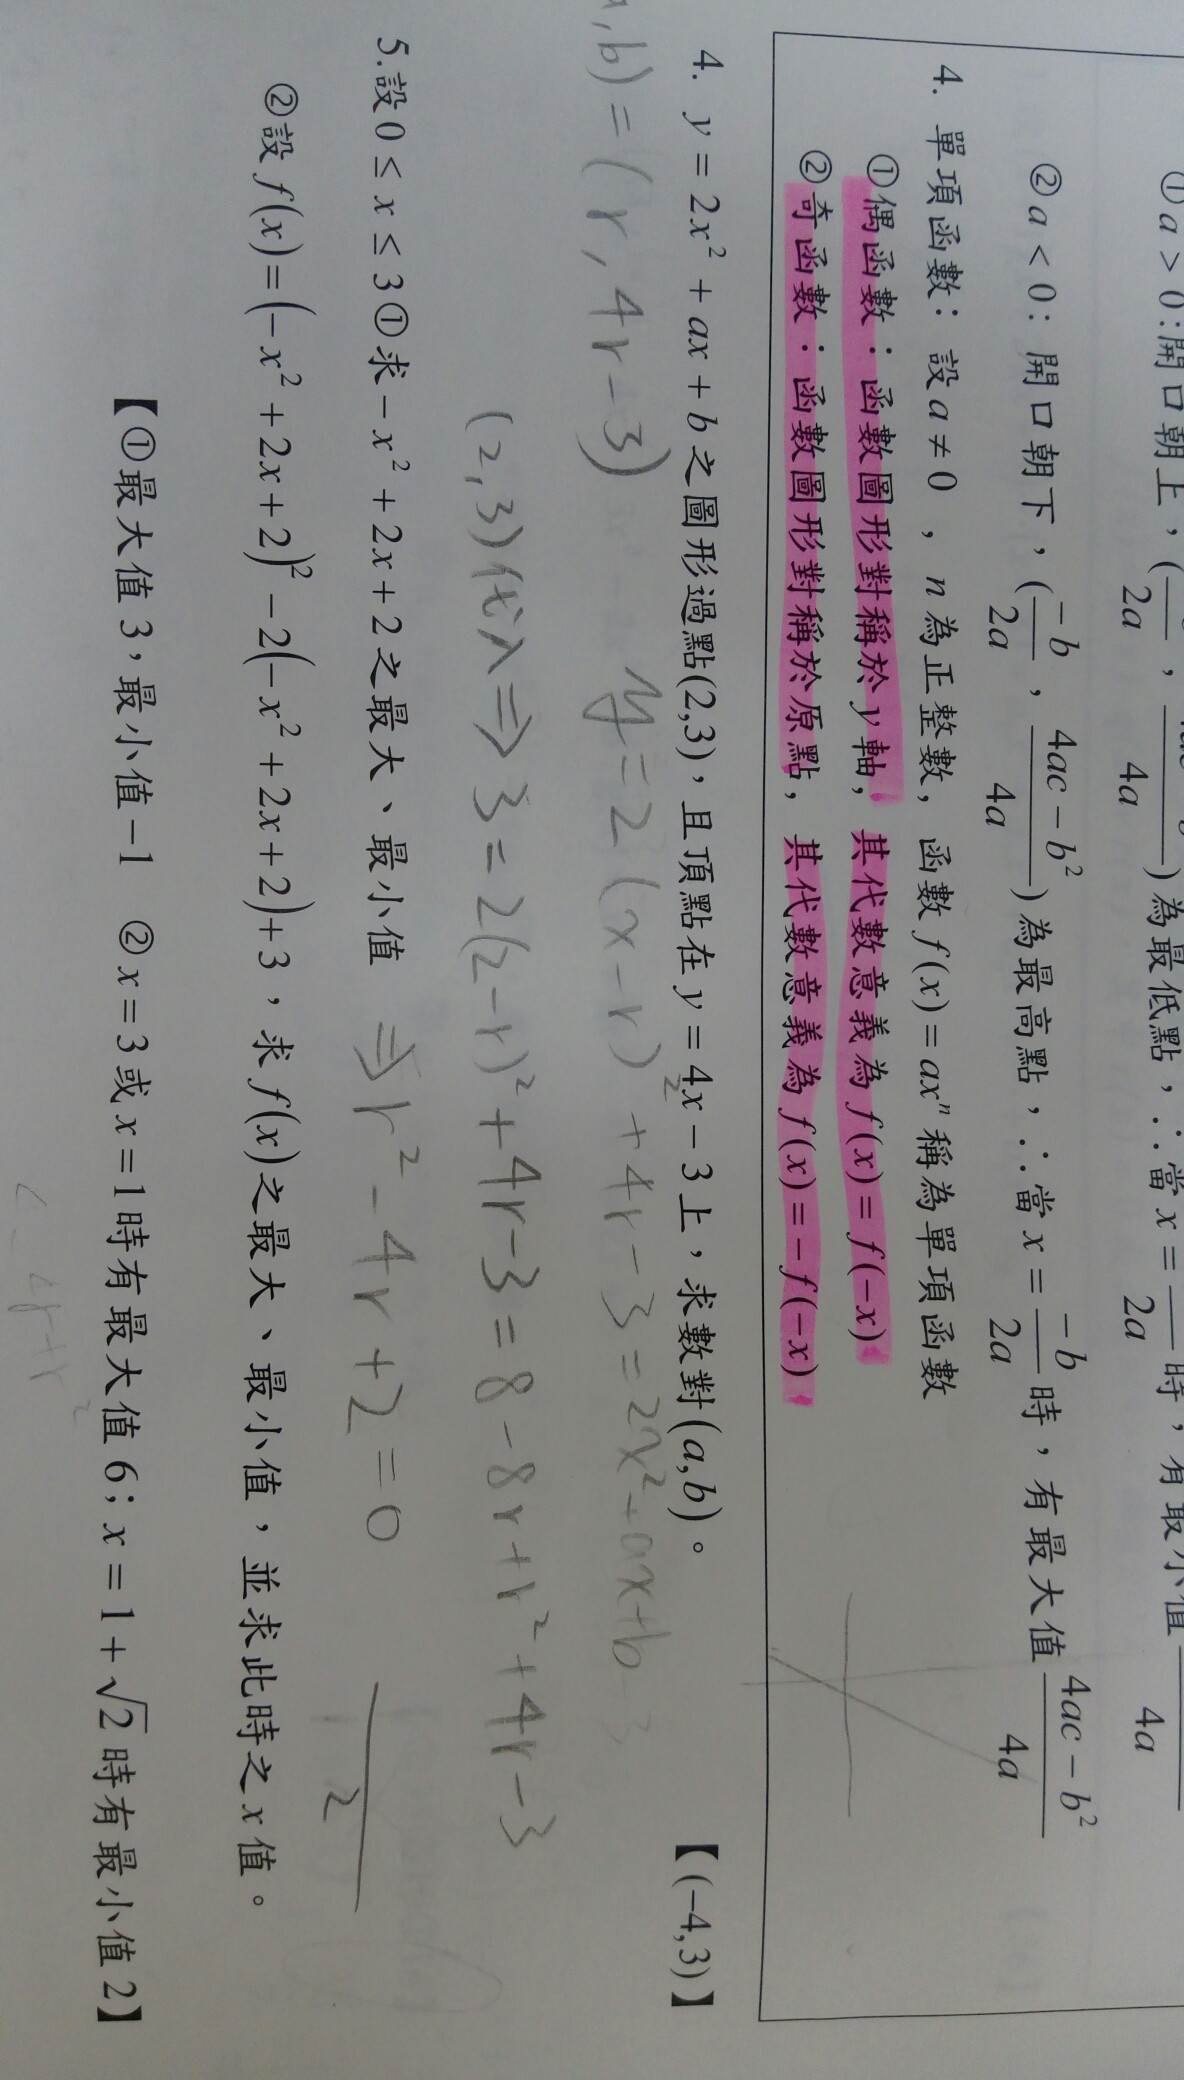 ①a > 0:開口朝上，( /2a , /4a )為最低點，∴當 x = /2a 時，有最小值 /4a
②a < 0：開口朝下，(-b/2a , 4ac - b²/4a)為最高點，∴當 x = -b/2a 時，有最大值 4ac - b²/4a
4. 單項函數：設 a ≠ 0 ，n 為正整數，函數 f(x) = axⁿ 稱為單項函數
①偶函數：函數圖形對稱於 y 軸，其代數意義為 f(x) = f(-x)
②奇函數：函數圖形對稱於原點，其代數意義為 f(x) = -f(-x)
4. y = 2x² + ax + b 之圖形過點(2,3)，且頂點在 y = 4x - 3 上，求數對(a,b)。 【(-4,3)】
,b) = (r, 4r-3) y = 2(x-r)² + 4r - 3 = 2x² + ax + b
(2,3)代入 ⇒ 3 = 2(2-r)² + 4r - 3 = 8 - 8r + r² + 4r - 3
5.設 0 ≤ x ≤ 3 ①求 - x² + 2x + 2 之最大、最小值 ⇒ r² - 4r + 2 = 0
②設 f(x) = (-x² + 2x + 2)² - 2(-x² + 2x + 2) + 3，求 f(x)之最大、最小值，並求此時之 x 值。
2
【①最大值 3，最小值 -1 ②x = 3 或 x = 1 時有最大值 6；x = 1 + √2 時有最小值 2】